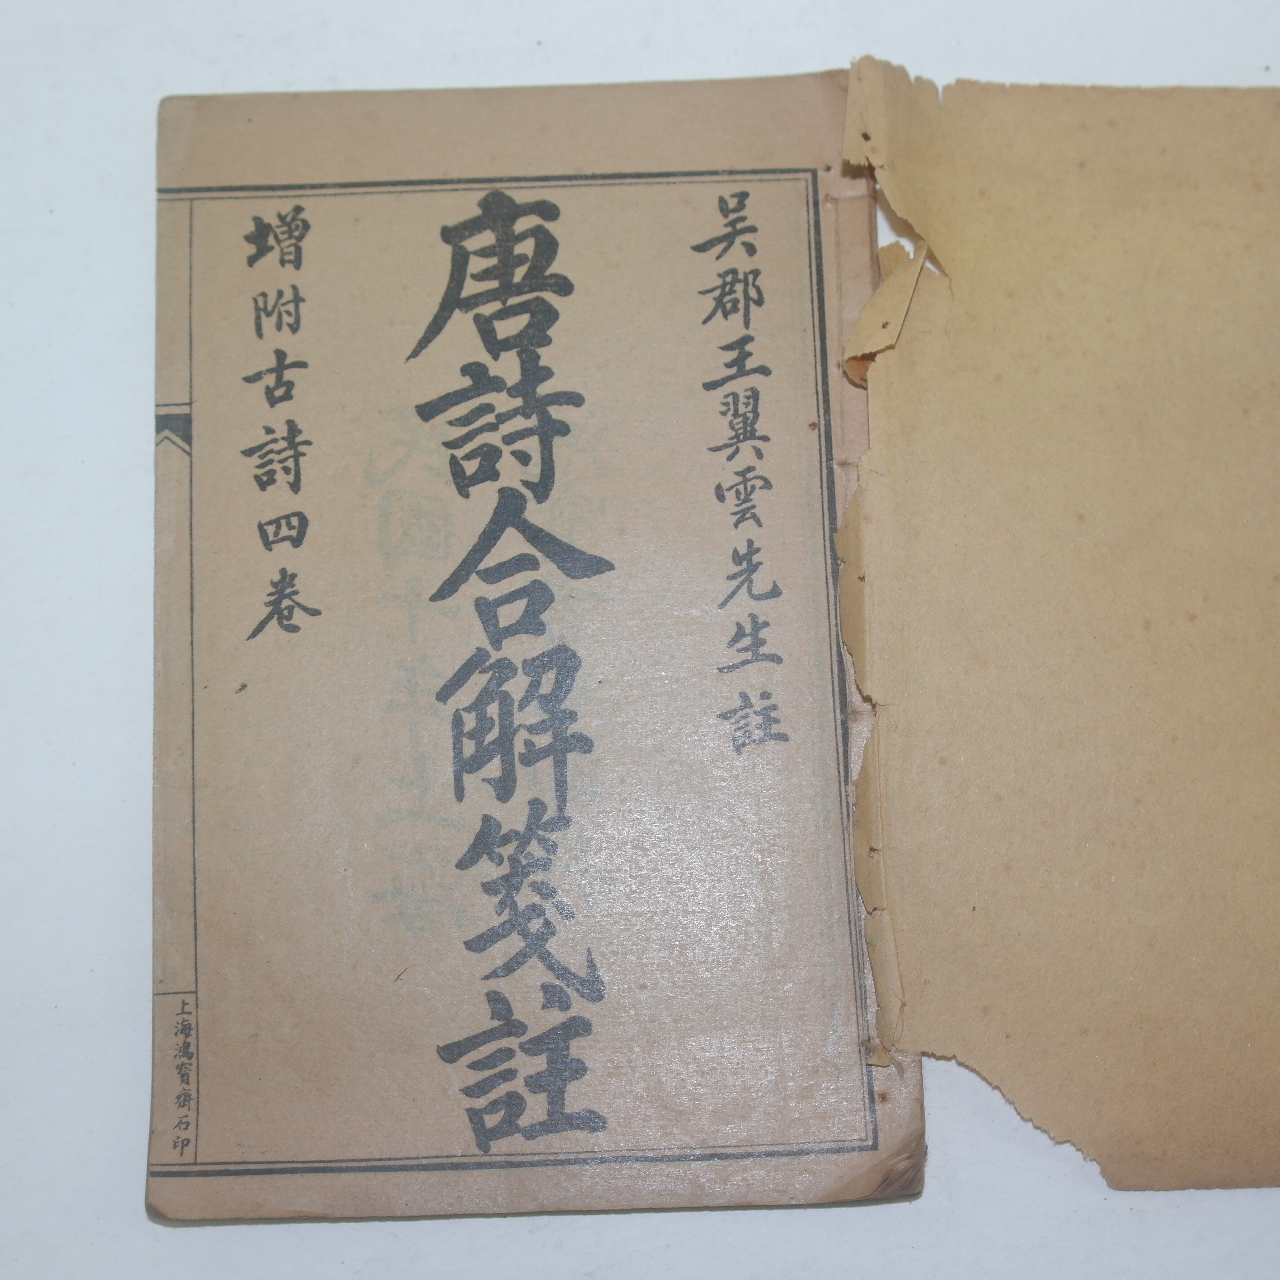 吳郡王翼雲先生註
唐詩合解箋註
增附古詩四卷
上海鴻寶齋石印